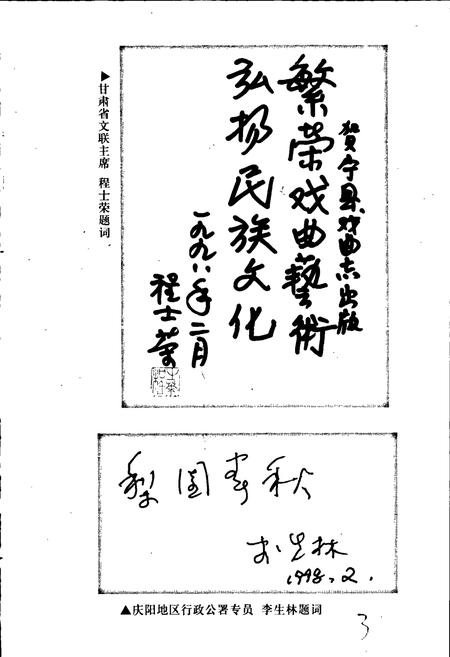 贺宁县戏曲志出版
繁荣戏曲藝術
弘扬民族文化
一九九八年二月
程士荣
▶甘肃省文联主席 程士荣题词
梨园春秋
李生林
1998.2.
▲庆阳地区行政公署专员 李生林题词
3